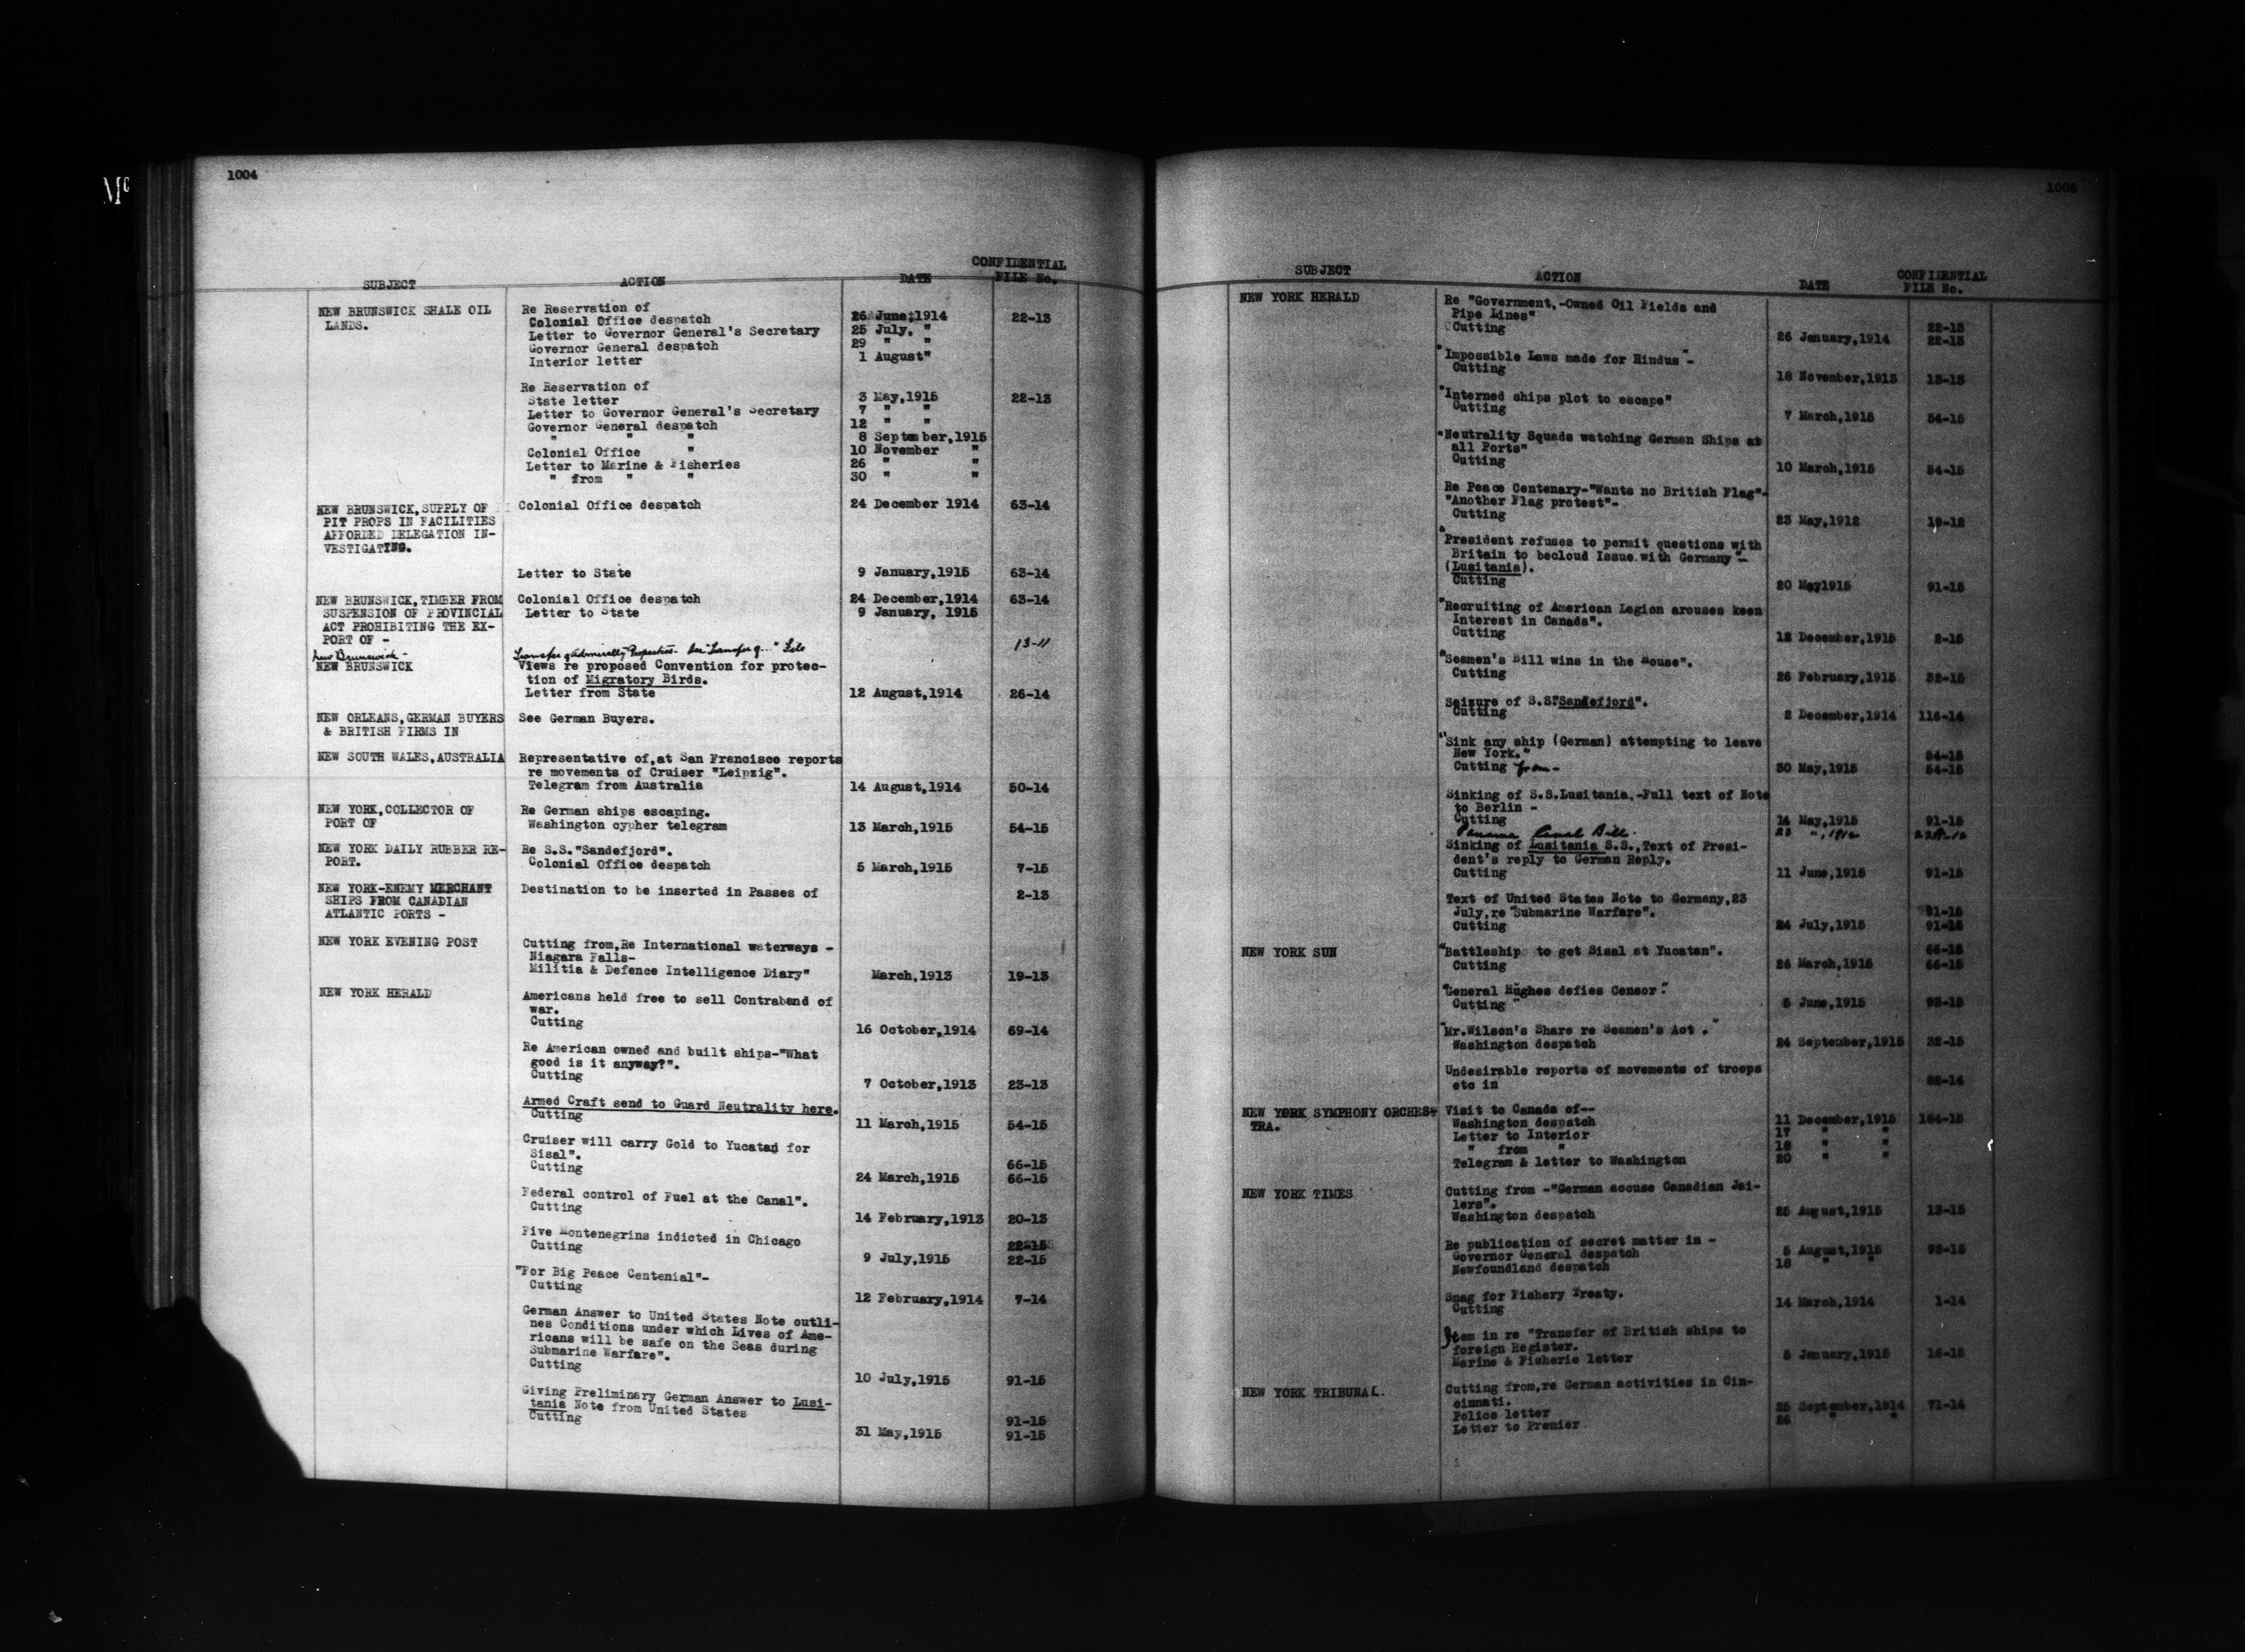 Mc
1004
SUBJECT ACTION DATE CONFIDENTIAL FILE No.
NEW BRUNSWICK SHALE OIL Re Reservation of
LANDS. Colonial Office despatch 26 June,1914 22-13
Letter to Governor General's Secretary 25 July, "
Governor General despatch 29 " "
Interior letter 1 August"
Re Reservation of
State letter 3 May,1915 22-13
Letter to Governor General's Secretary 7 " "
Governor General despatch 12 " "
" " " 8 September,1915
Colonial Office " 10 November "
Letter to Marine & Fisheries 26 " "
" from " " 30 " "
NEW BRUNSWICK,SUPPLY OF Colonial Office despatch 24 December 1914 63-14
PIT PROPS IN FACILITIES
AFFORDED DELEGATION IN-
VESTIGATING.
Letter to State 9 January,1915 63-14
NEW BRUNSWICK,TIMBER FROM Colonial Office despatch 24 December,1914 63-14
SUSPENSION OF PROVINCIAL Letter to State 9 January, 1915
ACT PROHIBITING THE EX-
PORT OF -
New Brunswick - Transfer of Admiralty Properties - See "Transfer of..." File 13-11
NEW BRUNSWICK Views re proposed Convention for protec-
tion of Migratory Birds.
Letter from State 12 August,1914 26-14
NEW ORLEANS,GERMAN BUYERS See German Buyers.
& BRITISH FIRMS IN
NEW SOUTH WALES,AUSTRALIA Representative of,at San Francisco reports
re movements of Cruiser "Leipzig".
Telegram from Australia 14 August,1914 50-14
NEW YORK,COLLECTOR OF Re German ships escaping.
PORT OF Washington cypher telegram 13 March,1915 54-15
NEW YORK DAILY RUBBER RE- Re S.S."Sandefjord".
PORT. Colonial Office despatch 5 March,1915 7-15
NEW YORK-ENEMY MERCHANT Destination to be inserted in Passes of 2-13
SHIPS FROM CANADIAN
ATLANTIC PORTS -
NEW YORK EVENING POST Cutting from,Re International waterways -
Niagara Falls-
Militia & Defence Intelligence Diary" March,1913 19-13
NEW YORK HERALD Americans held free to sell Contraband of
war.
Cutting 16 October,1914 69-14
Re American owned and built ships-"What
good is it anyway?".
Cutting 7 October,1913 23-13
Armed Craft send to Guard Neutrality here.
Cutting 11 March,1915 54-15
Cruiser will carry Gold to Yucatan for
Sisal".
66-15
Cutting 24 March,1915 66-15
Federal control of Fuel at the Canal".
Cutting 14 February,1913 20-13
Five Montenegrins indicted in Chicago
22-15
Cutting 9 July,1915 22-15
"For Big Peace Centenial"-
Cutting 12 February,1914 7-14
German Answer to United States Note outli-
nes Conditions under which Lives of Ame-
ricans will be safe on the Seas during
Submarine Warfare".
Cutting 10 July,1915 91-15
Giving Preliminary German Answer to Lusi-
tania Note from United States
91-15
Cutting 31 May,1915 91-15
1005
SUBJECT ACTION DATE CONFIDENTIAL FILE No.
NEW YORK HERALD Re "Government,-Owned Oil Fields and
Pipe Lines"
22-13
Cutting 26 January,1914 22-13
"Impossible Laws made for Hindus"-
Cutting 18 November,1913 13-13
"Interned ships plot to escape"
Cutting 7 March,1915 54-15
"Neutrality Squads watching German Ships at
all Ports"
Cutting 10 March,1915 54-15
Re Peace Centenary-"Wants no British Flag"-
"Another Flag protest"-
Cutting 23 May,1912 19-12
"President refuses to permit questions with
Britain to becloud Issue with Germany"-
(Lusitania).
Cutting 20 May1915 91-15
"Recruiting of American Legion arouses keen
Interest in Canada".
Cutting 12 December,1915 2-15
"Seamen's Bill wins in the House".
Cutting 26 February,1915 32-15
Seizure of S.S."Sandefjord".
Cutting 2 December,1914 116-14
"Sink any ship (German) attempting to leave
New York."
54-15
Cutting from- 30 May,1915 54-15
Sinking of S.S.Lusitania,-Full text of Note
to Berlin -
Cutting 14 May,1915 91-15
Panama Canal Bill. 23 ",1912
Sinking of Lusitania S.S.,Text of Presi-
dent's reply to German Reply.
Cutting 11 June,1915 91-15
Text of United States Note to Germany,23
July,re "Submarine Warfare".
91-15
Cutting 24 July,1915 91-15
NEW YORK SUN "Battleship to get Sisal at Yucatan".
66-15
Cutting 26 March,1915 66-15
"General Hughes defies Censor".
Cutting 5 June,1915 93-15
"Mr.Wilson's Share re Seamen's Act ."
Washington despatch 24 September,1915 32-15
Undesirable reports of movements of troops
etc in 62-14
NEW YORK SYMPHONY ORCHES- Visit to Canada of--
TRA. Washington despatch 11 December,1915 184-15
Letter to Interior 17 " "
" from " 18 " "
Telegram & letter to Washington 20 " "
NEW YORK TIMES Cutting from -"German accuse Canadian Jai-
lers".
Washington despatch 25 August,1915 13-15
Re publication of secret matter in -
Governor General despatch 5 August,1915 93-15
Newfoundland despatch 18 " "
Snag for Fishery Treaty.
Cutting 14 March,1914 1-14
Item in re "Transfer of British ships to
foreign Register.
Marine & Fisherie letter 5 January,1915 16-15
NEW YORK TRIBUNAL. Cutting from,re German activities in Cin-
cinnati.
Police letter 25 September,1914 71-14
Letter to Premier 26 " "